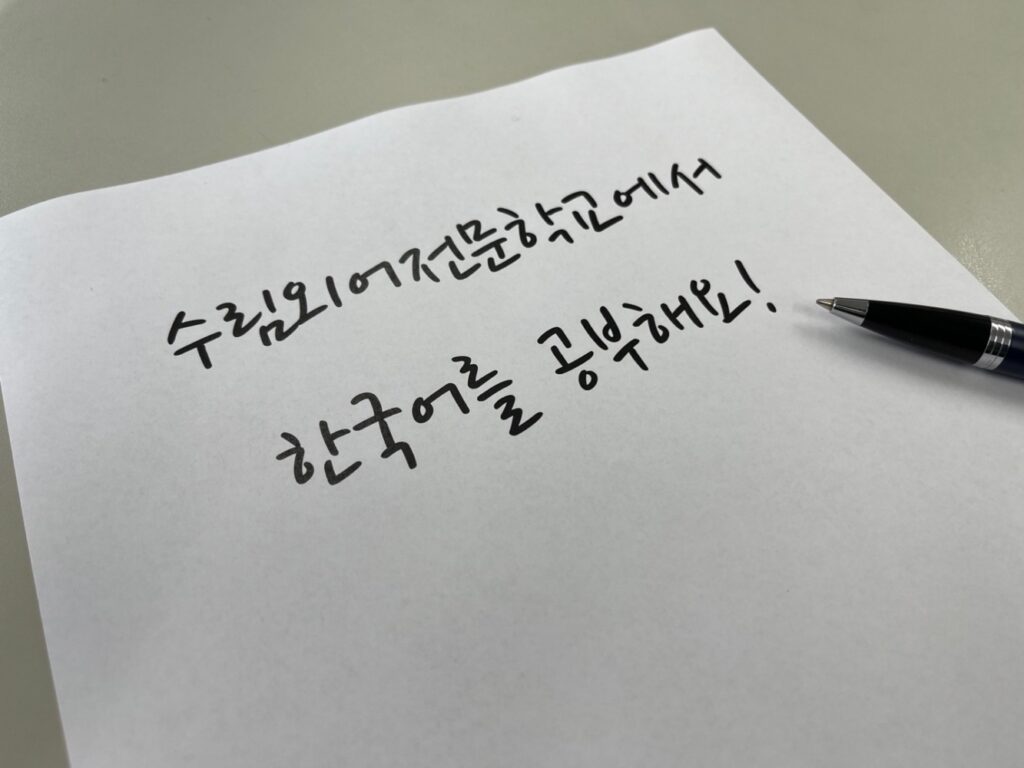 수림외어전문학교에서
한국어를 공부해요!